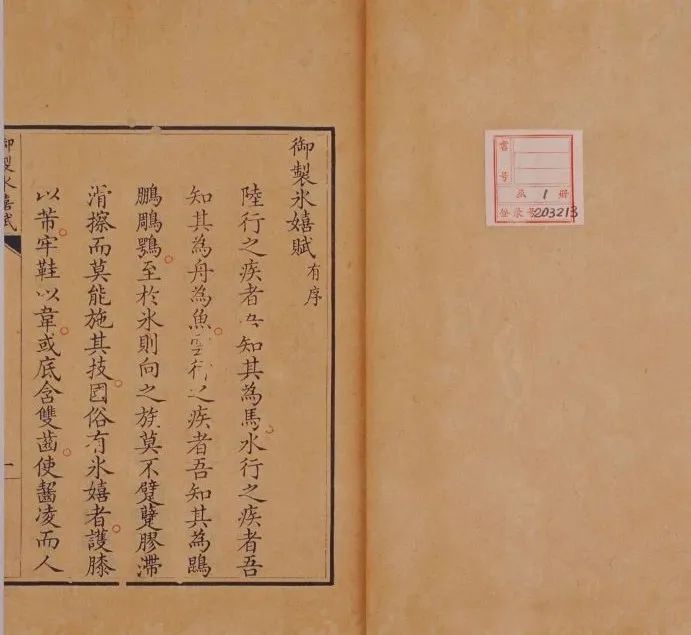 書号
1 册
登录号 203213
御製氷嬉賦有序
陸行之疾者吾知其為馬水行之疾者吾
知其為舟為魚雲行之疾者吾知其為鵾
鵬鵰鶚至於氷則向之族莫不躄躠膠滯
滑擦而莫能施其技國俗有氷嬉者護膝
以芾牢鞋以韋或底含雙齒使齧凌而人
御製氷嬉賦
一